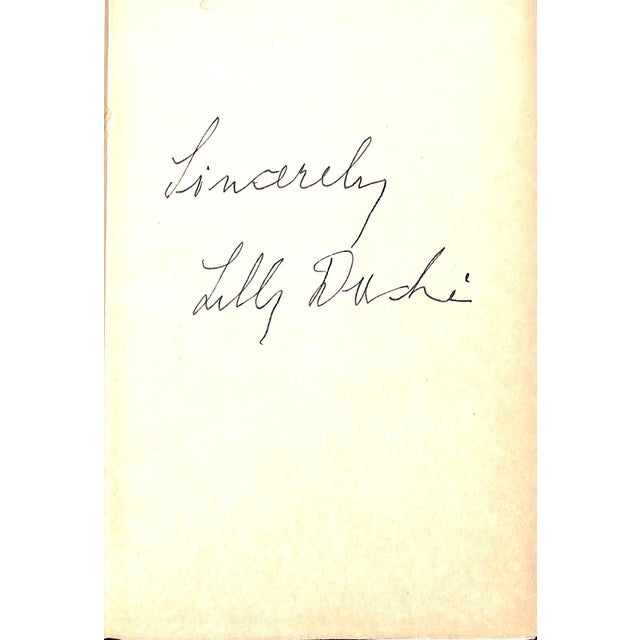 Sincerely
Lilly Daché